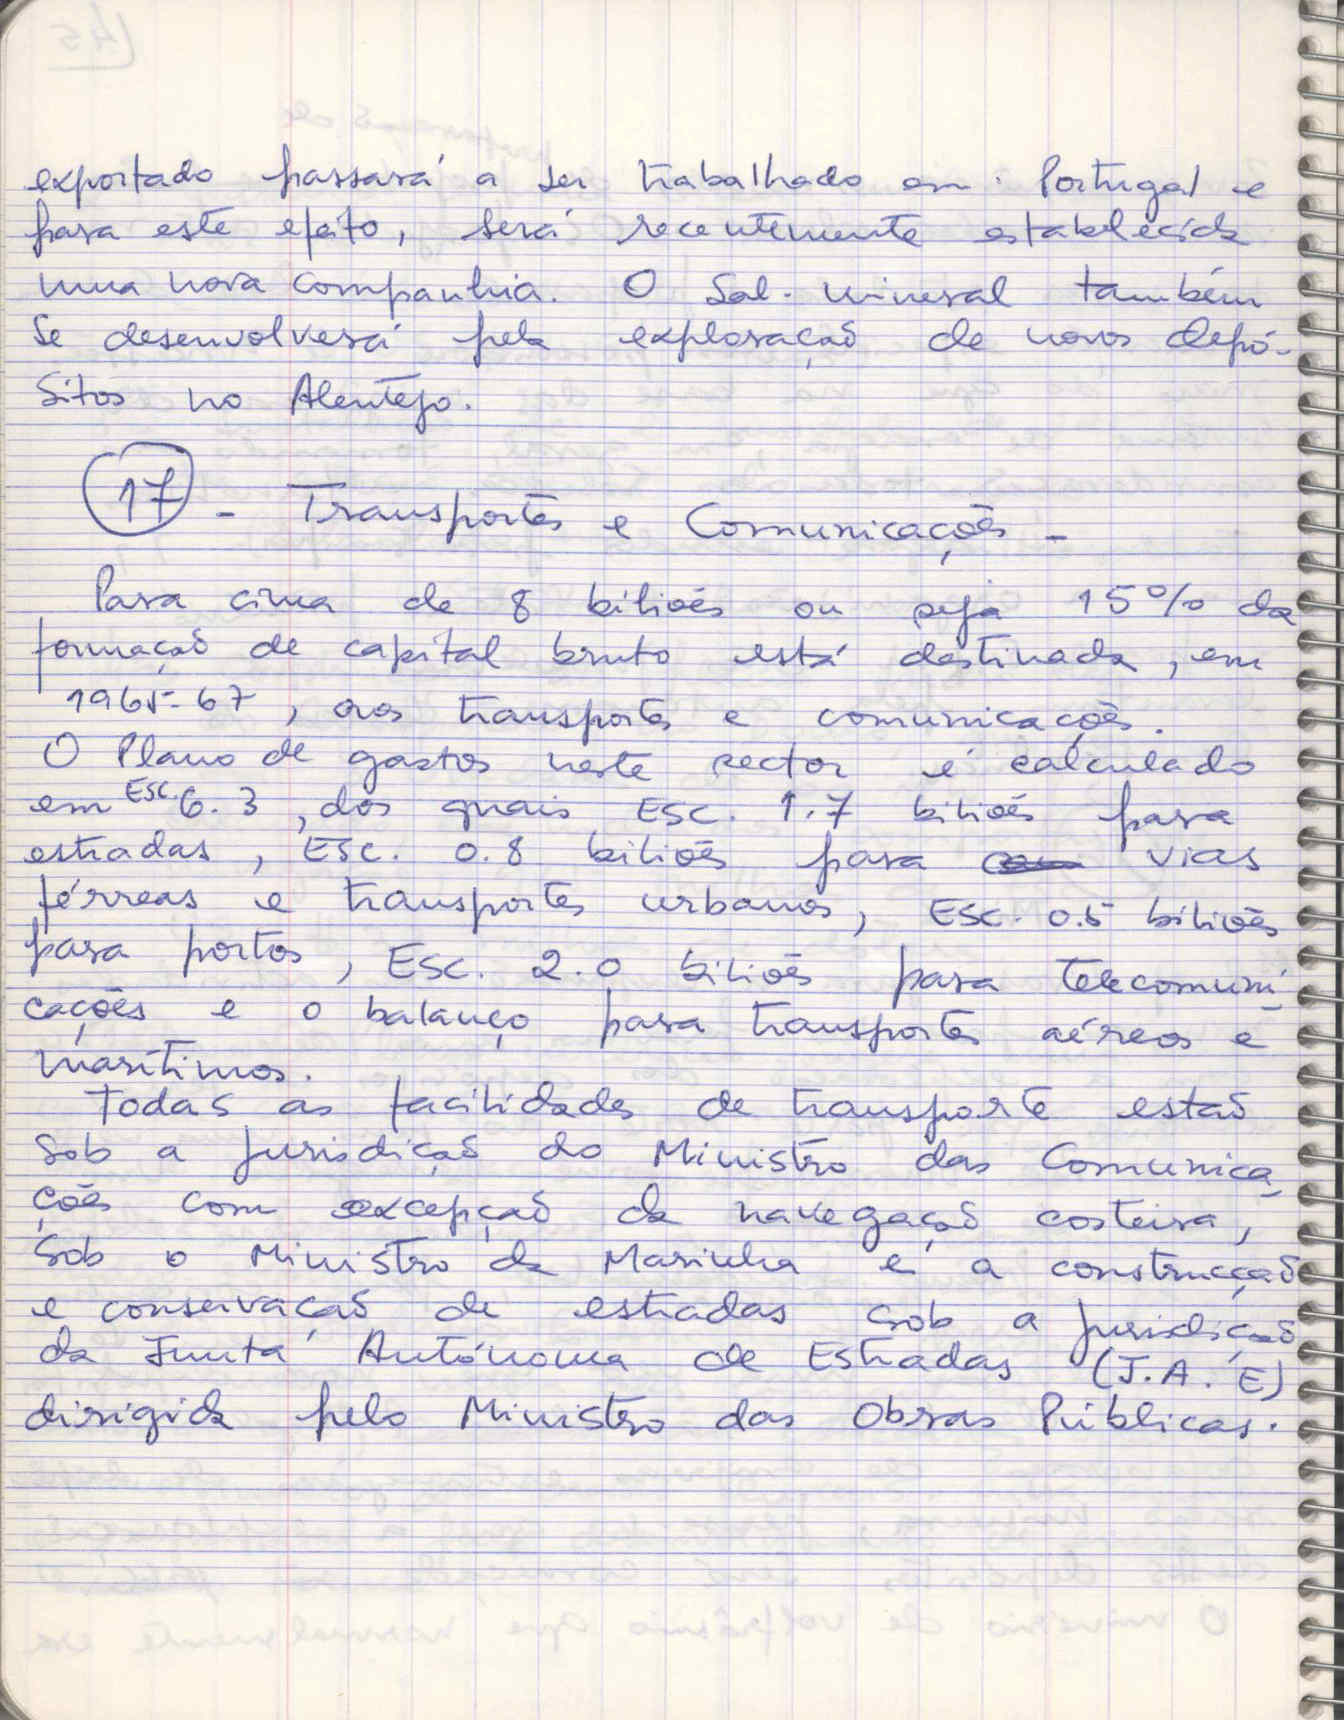 exportado passará a ser trabalhado em Portugal e
para este efeito, será recentemente estabelecida
uma nova companhia. O Sal-mineral também
se desenvolverá pela exploração de novos depó-
sitos no Alentejo.
17 - Transportes e Comunicações -
Para cima de 8 biliões ou seja 15% da
formação de capital bruto está destinada, em
1965-67, aos transportes e comunicações.
O Plano de gastos neste sector é calculado
em Esc. 6.3, dos quais Esc. 1.7 biliões para
estradas, Esc. 0.8 biliões para vias
férreas e transportes urbanos, Esc. 0.5 biliões
para portos, Esc. 2.0 biliões para telecomuni-
cações e o balanço para transportes aéreos e
marítimos.
Todas as facilidades de transporte estão
sob a jurisdição do Ministro das Comunica-
ções com excepção da navegação costeira,
sob o Ministro da Marinha e a construcção
e conservação de estradas sob a jurisdição
da Junta Autónoma de Estradas (J.A.E)
dirigida pelo Ministro das Obras Públicas.